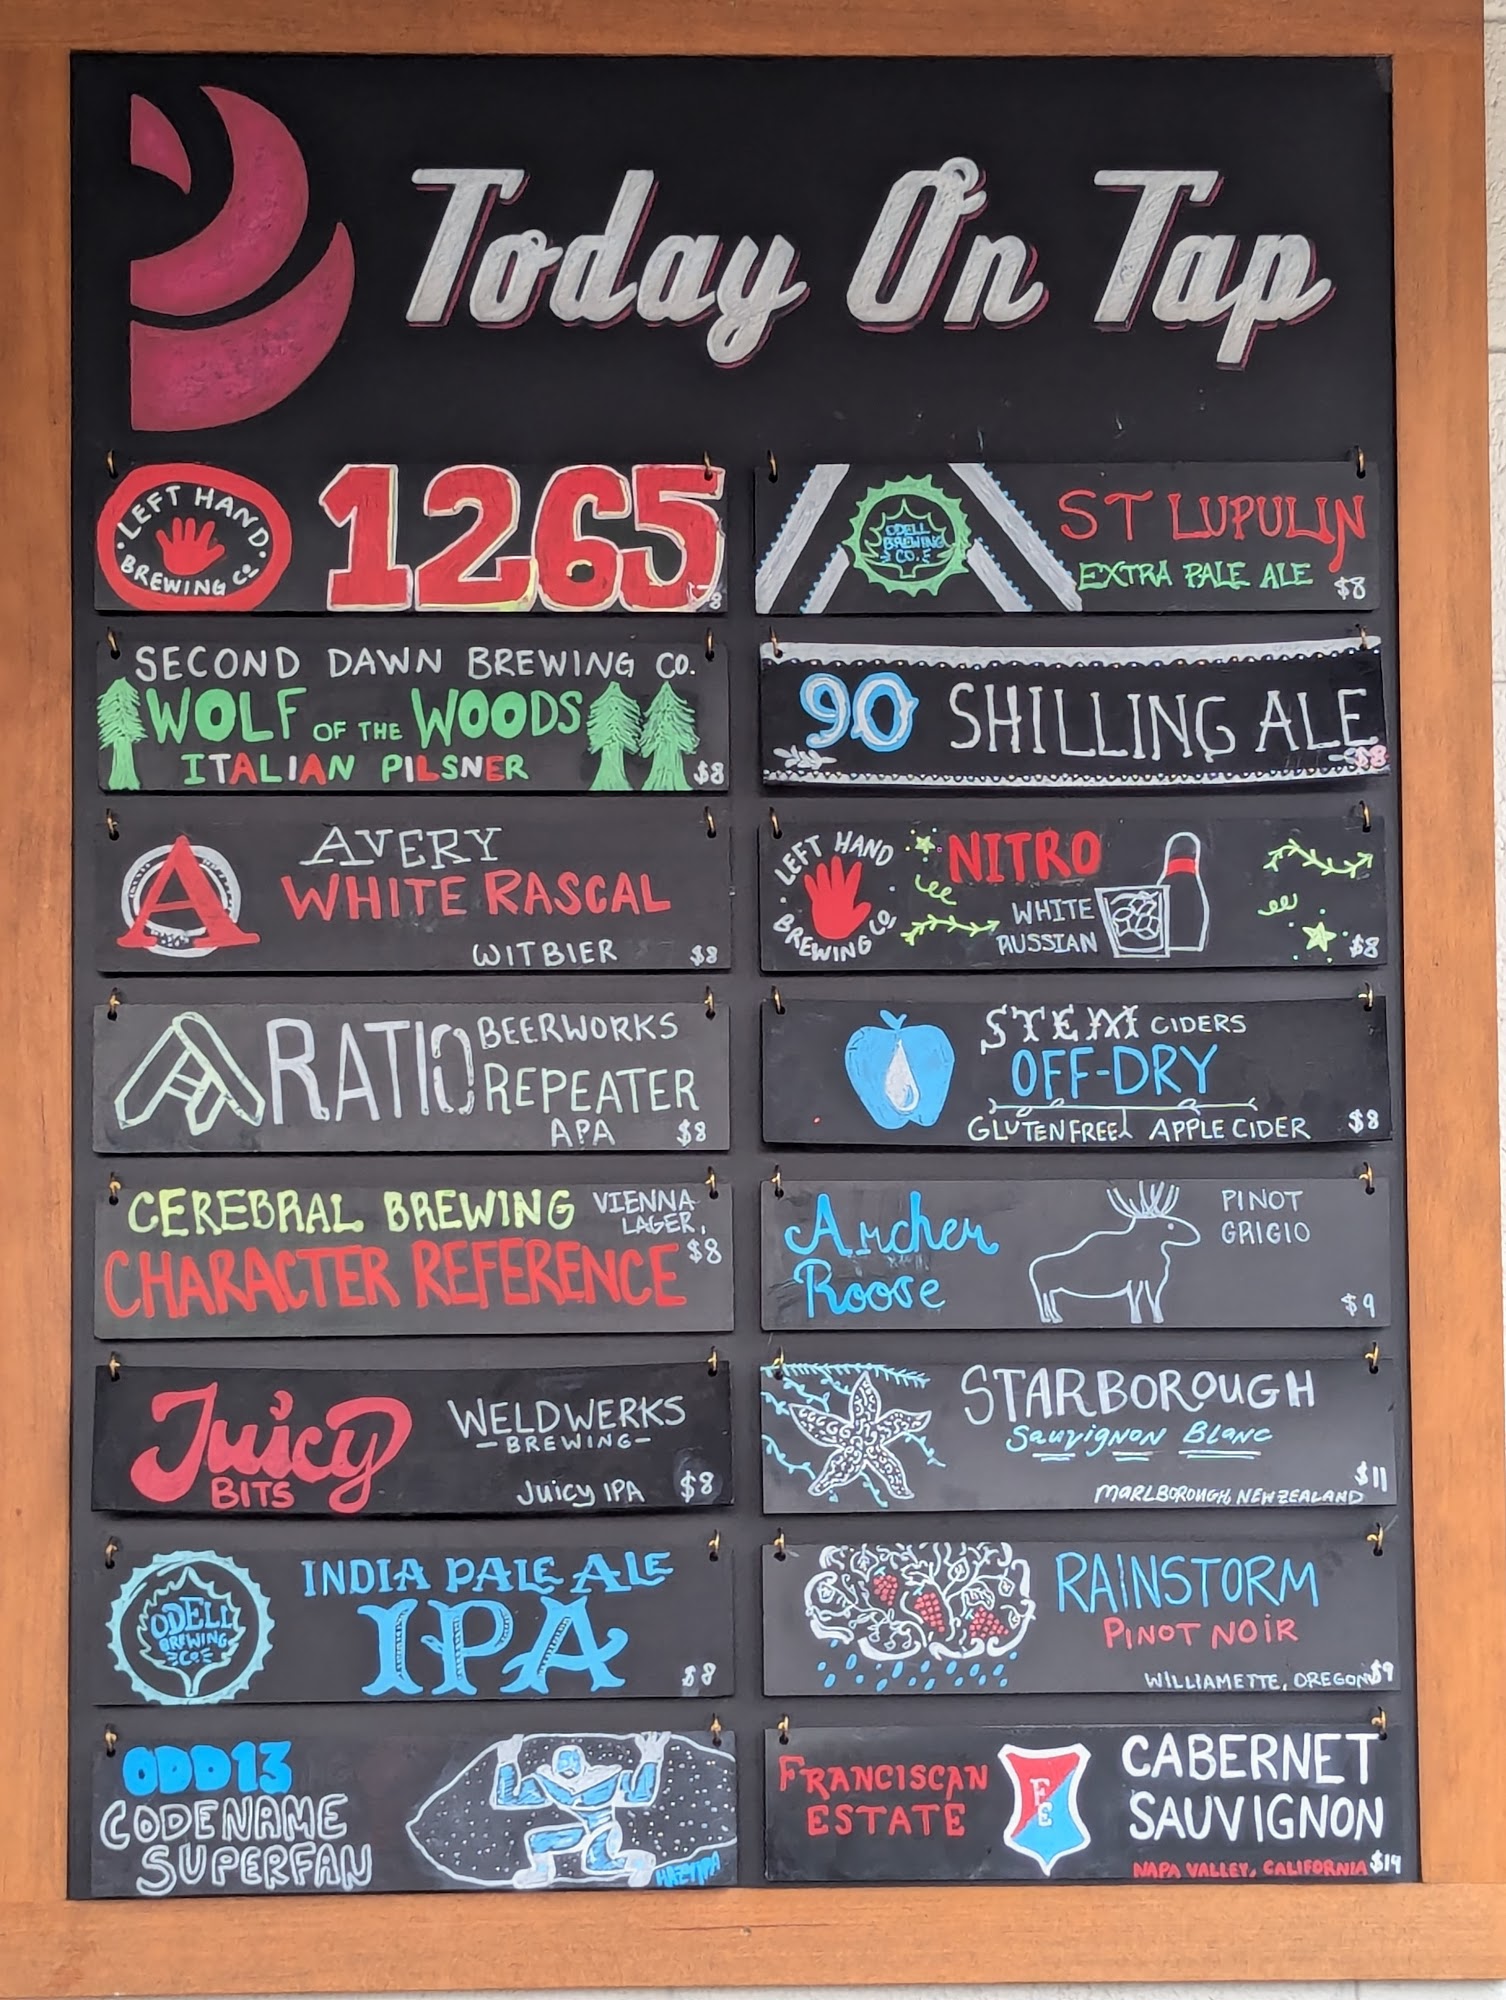 Today On Tap
LEFT HAND
BREWING Co
1265
SECOND DAWN BREWING CO.
WOLF OF THE WOODS
ITALIAN PILSNER
$8
A
AVERY
WHITE RASCAL
WITBIER $8
RATIO BEERWORKS
REPEATER
APA $8
CEREBRAL BREWING VIENNA
LAGER
$8
CHARACTER REFERENCE
Juicy
BITS
WELDWERKS
-BREWING-
Juicy IPA $8
ODELL
BREWING
CO
INDIA PALE ALE
IPA
$8
ODD13
CODENAME
SUPERFAN
HAZY IPA
ODELL
BREWING
CO.
ST LUPULIN
EXTRA PALE ALE $8
90 SHILLING ALE
$8
LEFT HAND
BREWING Co
NITRO
WHITE
RUSSIAN
$8
STEM CIDERS
OFF-DRY
GLUTEN FREE APPLE CIDER $8
Archer
Roose
PINOT
GRIGIO
$9
STARBOROUGH
Sauvignon Blanc
$11
MARLBOROUGH, NEW ZEALAND
RAINSTORM
PINOT NOIR
WILLIAMETTE, OREGON $9
FRANCISCAN
ESTATE
F
E
CABERNET
SAUVIGNON
NAPA VALLEY, CALIFORNIA $14